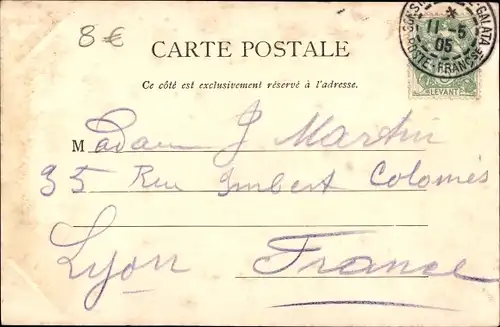 8 €
CARTE POSTALE
Ce côté est exclusivement réservé à l'adresse.
GALATA
11-5
05
POSTE FRANCSE
LEVANT
Madam J Martin
35 Rue Imbert Colomès
Lyon France